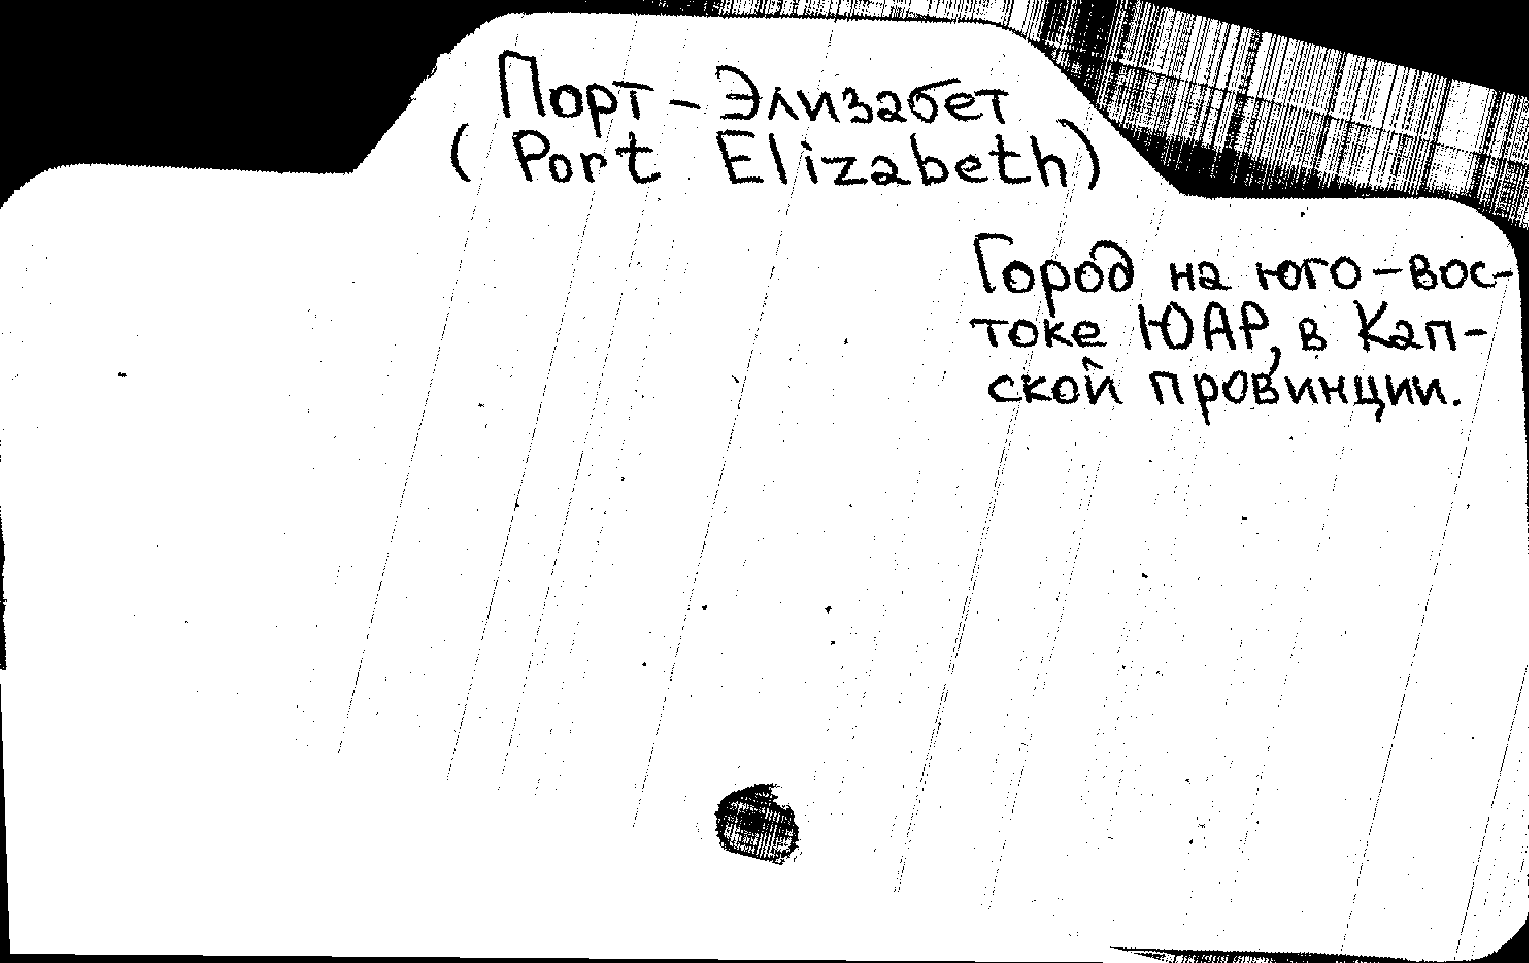 Порт-Элизабет
(Port Elizabeth)
Город на юго-вос-
токе ЮАР, в Кап-
ской провинции.